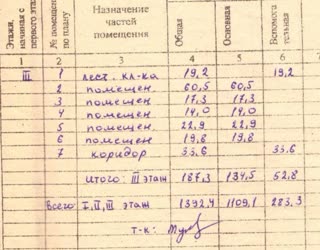 Этажи, начиная с первого этажа
№ помещен. по плану
Назначение частей помещения
Общая
Основная
Вспомогательная
1 2 3 4 5 6
III 1 лест. кл-ка 19,2 19,2
2 помещен. 60,5 60,5
3 помещен 17,3 17,3
4 помещен 14,0 14,0
5 помещен 22,9 22,9
6 помещен 19,8 19,8
7 коридор 33,6 33,6
Итого: III этаж 187,3 134,5 52,8
Всего: I, II, III этаж 1392,4 1109,1 283,3
т-к: